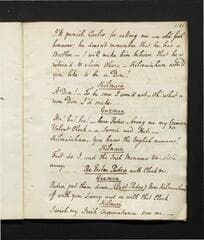 I'll punish Carlos for calling me an old fool
however, he doesn't remember that he has a
Brother – I will make him believe that he is
return'd to claim Olivia – Kilmainham would
you like to be a Don?
Kilmain
A Don! – To be sure I would
Don I'd make.
Guzman
Ha! ha! ha, – here Pedro, bring me my
Velvet Cloak – a Sword and Hat –
Kilmainham, you know the English manners?
Kilmain
Faith do I, and the Irish manners too
away.
Re Enter Pedro with Cloak &c
Guzman
Pedro, put them down (Exit Pedro) Now Kilmainham
off with your Livery and on with this Cloak
Kilmain
I wish my Irish acquaintance saw me –